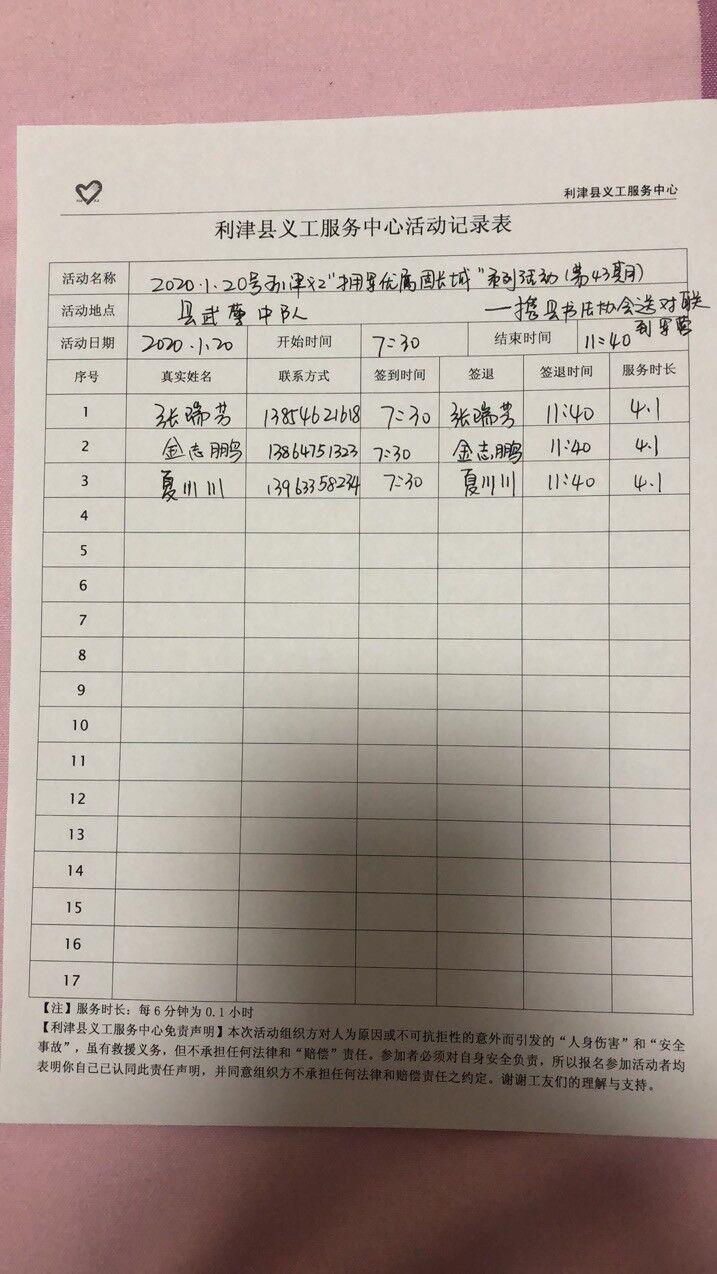 利津县义工服务中心
利津县义工服务中心活动记录表
活动名称 2020.1.20号利津义工"拥军优属固长城"系列活动(第43期)
活动地点 县武警中队 —携县书法协会送对联
到军营
活动日期 2020.1.20 开始时间 7:30 结束时间 11:40
序号 真实姓名 联系方式 签到时间 签退 签退时间 服务时长
1 张瑞芳 13854621618 7:30 张瑞芳 11:40 4.1
2 金志鹏 13864751323 7:30 金志鹏 11:40 4.1
3 夏川川 13963358234 7:30 夏川川 11:40 4.1
4
5
6
7
8
9
10
11
12
13
14
15
16
17
【注】服务时长：每6分钟为0.1小时
【利津县义工服务中心免责声明】本次活动组织方对人为原因或不可抗拒性的意外而引发的“人身伤害”和“安全
事故”，虽有救援义务，但不承担任何法律和“赔偿”责任。参加者必须对自身安全负责，所以报名参加活动者均
表明你自己已认同此责任声明，并同意组织方不承担任何法律和赔偿责任之约定。谢谢工友们的理解与支持。